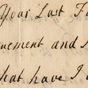 Your Last F
ncement and
that have I